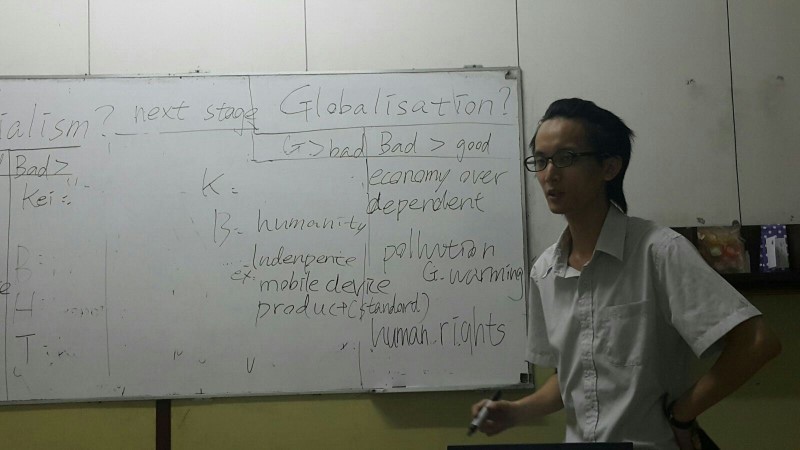 ialism? next stage Globalisation?
Bad >
Kei =
B:
H
T
G > bad
K =
B = humanity
Indenpente
ex: mobile device
product (standard)
Bad > good
economy over
dependent
pollution
G. warming
human rights